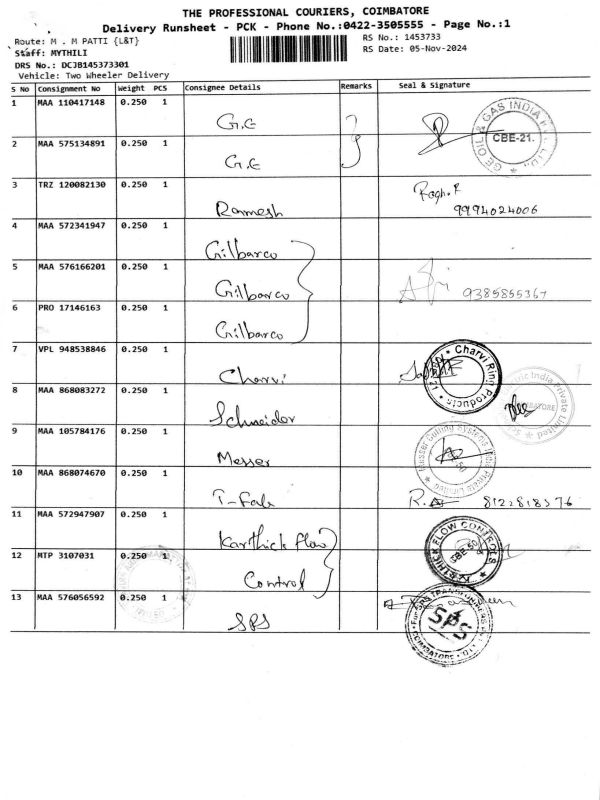 THE PROFESSIONAL COURIERS, COIMBATORE
Delivery Runsheet - PCK - Phone No.:0422-3505555 - Page No.:1
Route: M . M PATTI {L&T}
RS No.: 1453733
Staff: MYTHILI
RS Date: 05-Nov-2024
DRS No.: DCJB145373301
Vehicle: Two Wheeler Delivery
S No Consignment No Weight PCS Consignee Details Remarks Seal & Signature
1 MAA 110417148 0.250 1 G.E
GE OIL & GAS INDIA PVT. LTD. CBE-21.
2 MAA 575134891 0.250 1 G.E
3 TRZ 120082130 0.250 1 Ramesh 9994024006
4 MAA 572341947 0.250 1 Gilbarco
5 MAA 576166201 0.250 1 Gilbarco 9385855367
6 PRO 17146163 0.250 1 Gilbarco
7 VPL 948538846 0.250 1 Charvi
Charvi Rinp Products
8 MAA 868083272 0.250 1 Schneider
India Private Limited
9 MAA 105784176 0.250 1 Messer
Messer Cutting Systems India Private Limited
10 MAA 868074670 0.250 1 T-Fab 8122818376
11 MAA 572947907 0.250 1 Karthick flow
KARTHICK FLOW CONTROLS CBE 50
12 MTP 3107031 0.250 1 Control
13 MAA 576056592 0.250 1 SPS
For SPS TRANSFORMERS COIMBATORE SPS